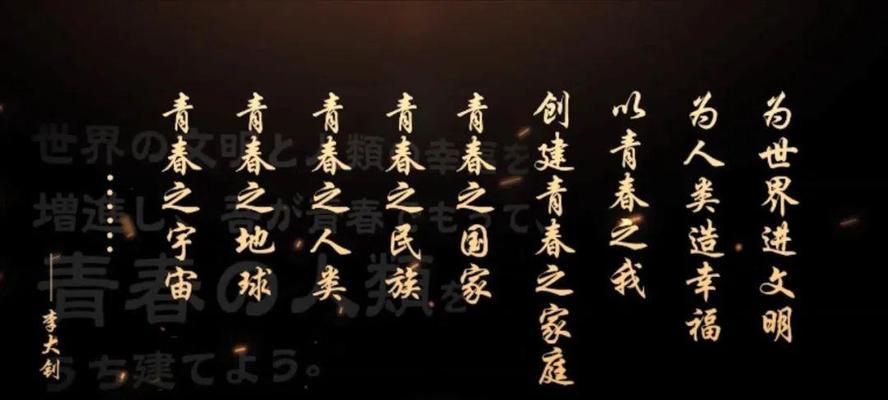 为世界进文明
为人类造幸福
以青春之我
创建青春之家庭
青春之国家
青春之民族
青春之人类
青春之地球
青春之宇宙
……
——李大钊
世界の文明と人類の幸福を
増進し、吾が青春でもって、
青春の人類を
うち建てよう。